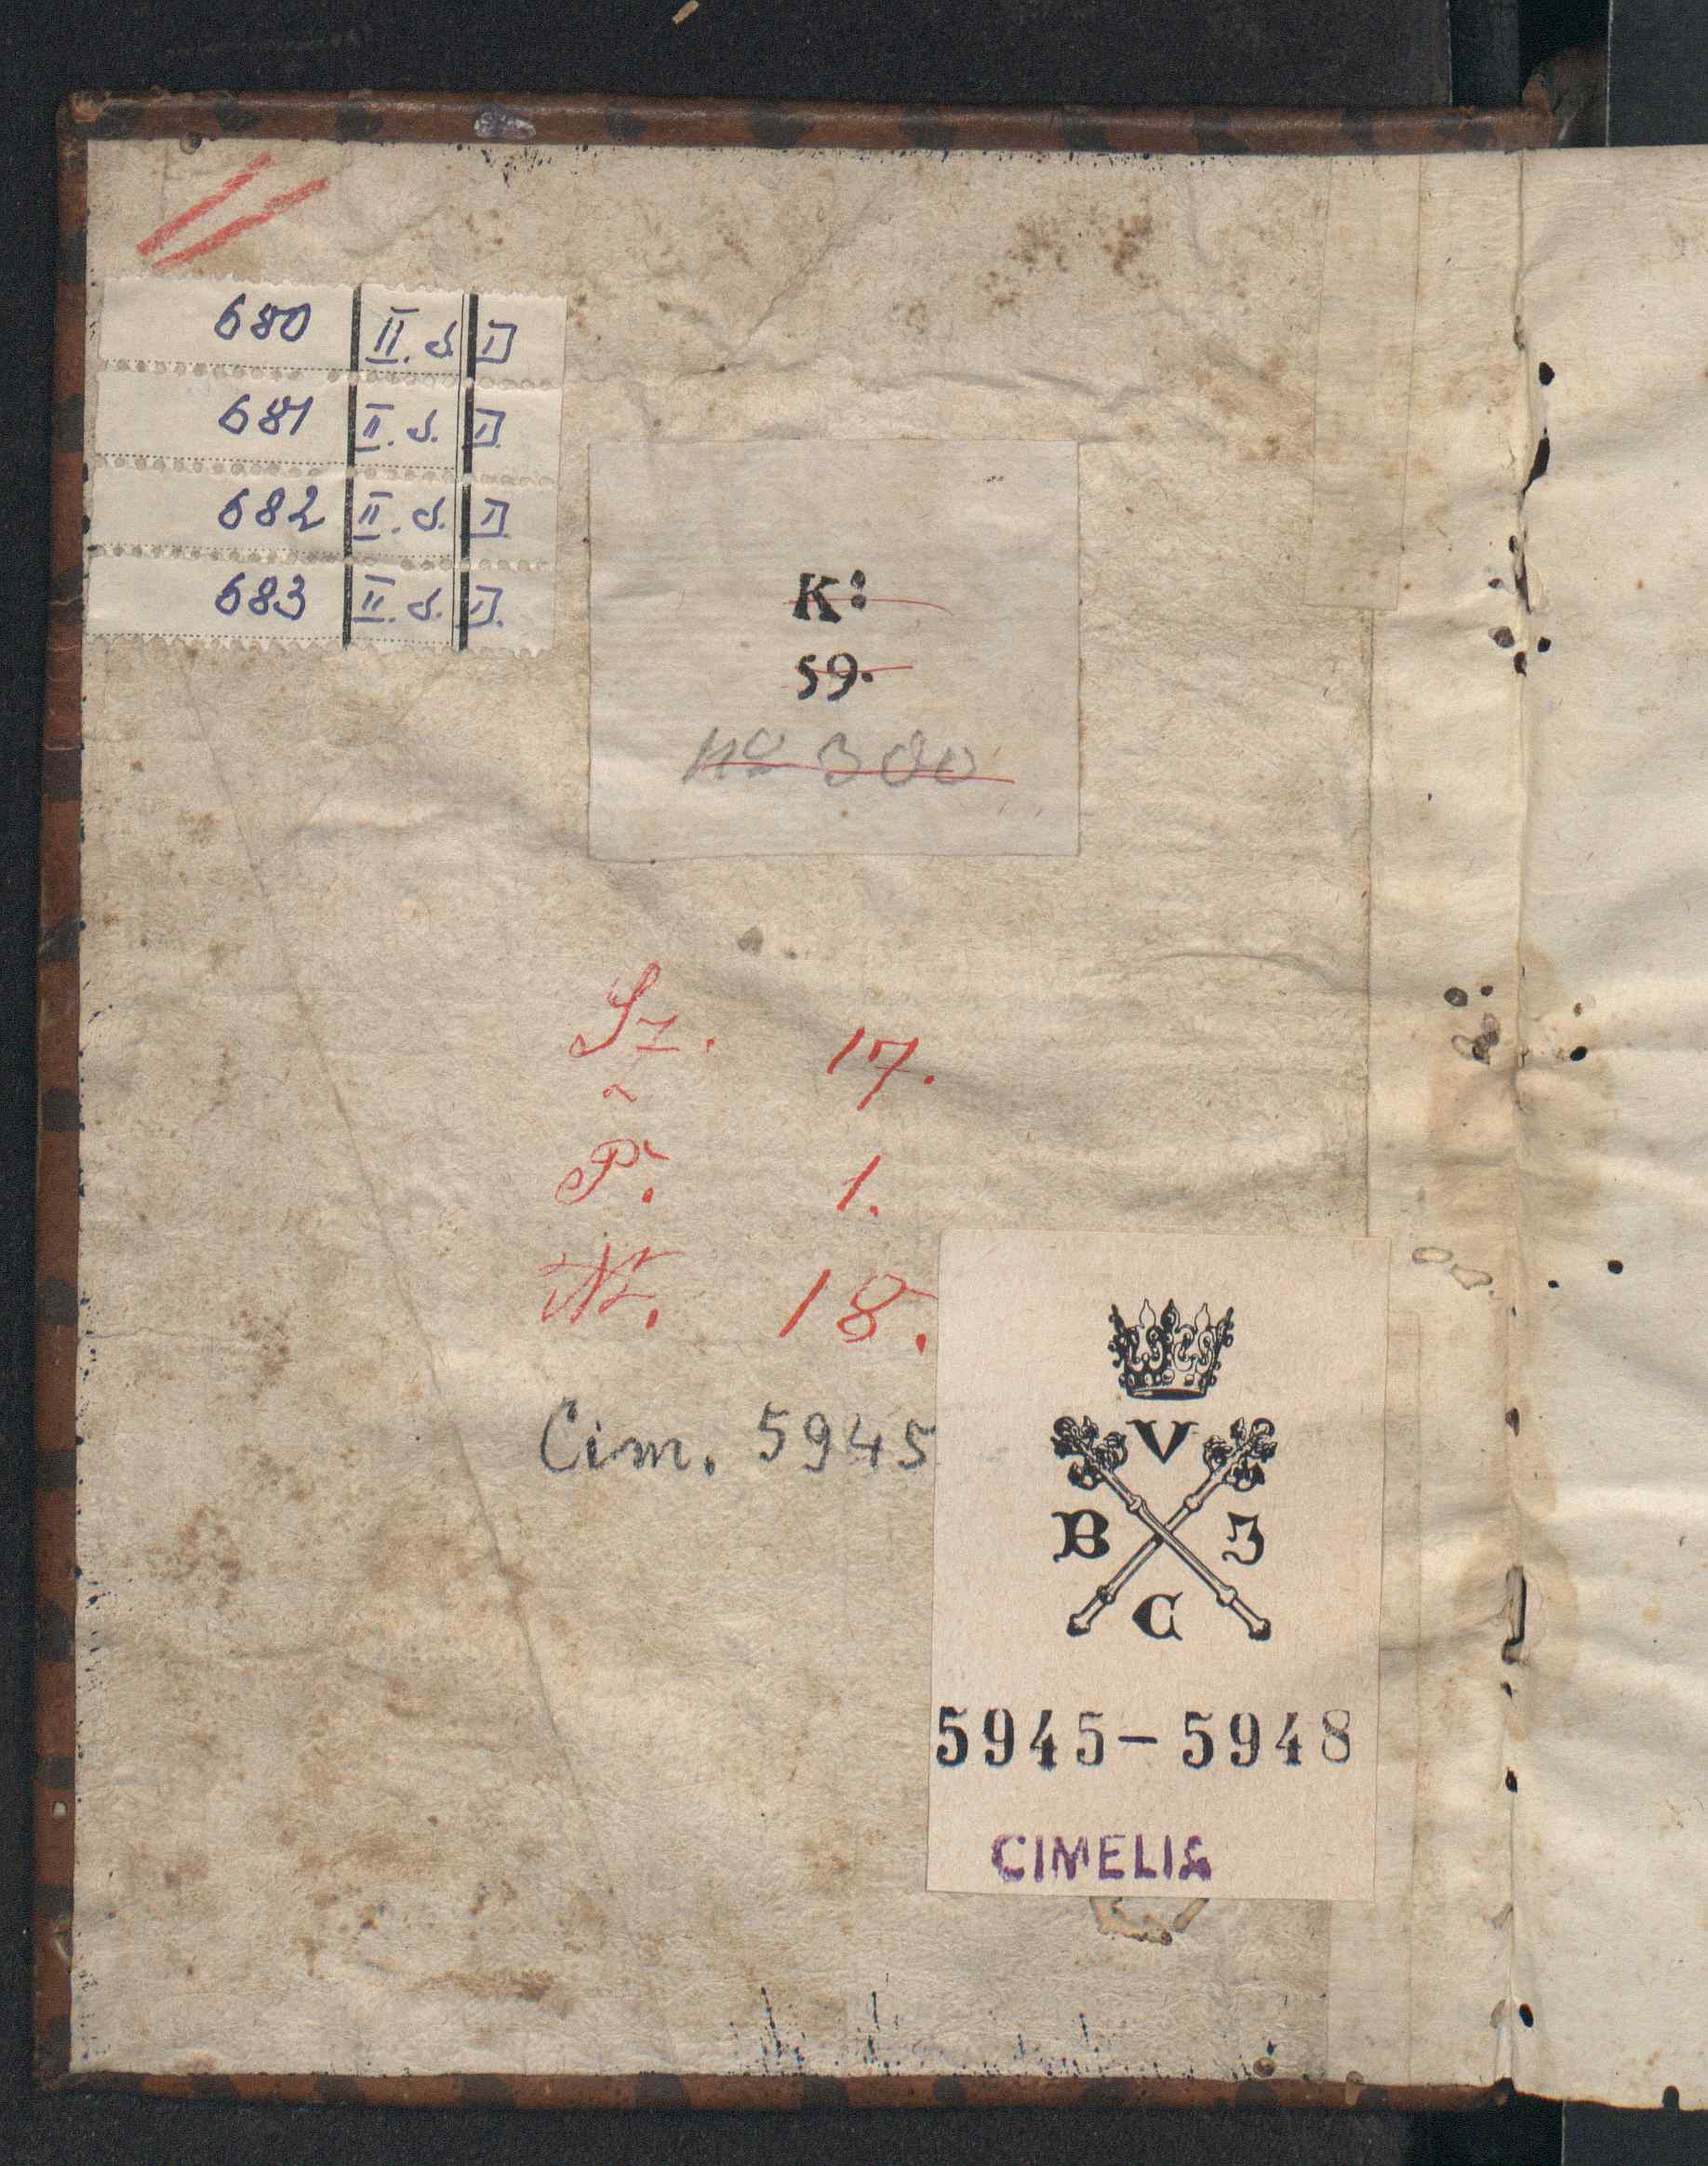 680 II. d. II
681 II. d. II.
682 II. d. II.
683 II. d. II.
K:
59.
Sz. 17.
P. 1.
Nr. 18.
Cim. 5945
V
B J
C
5945-5948
CIMELIA